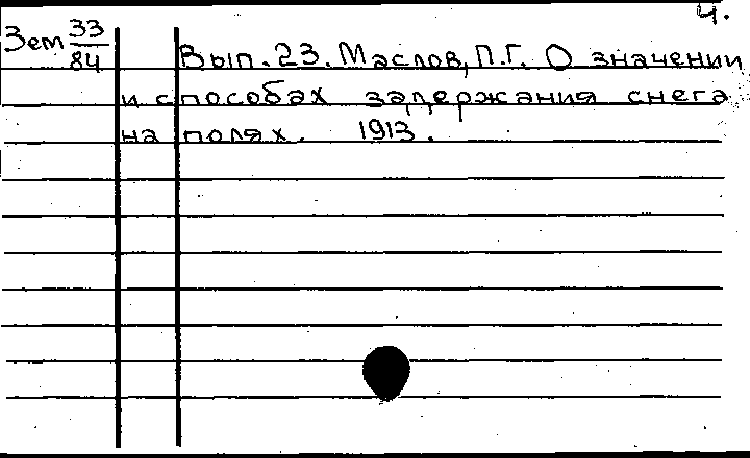 4.
Зем 33/84 Вып. 23. Маслов, П.Г. О значении
и способах задержания снега
на полях. 1913.